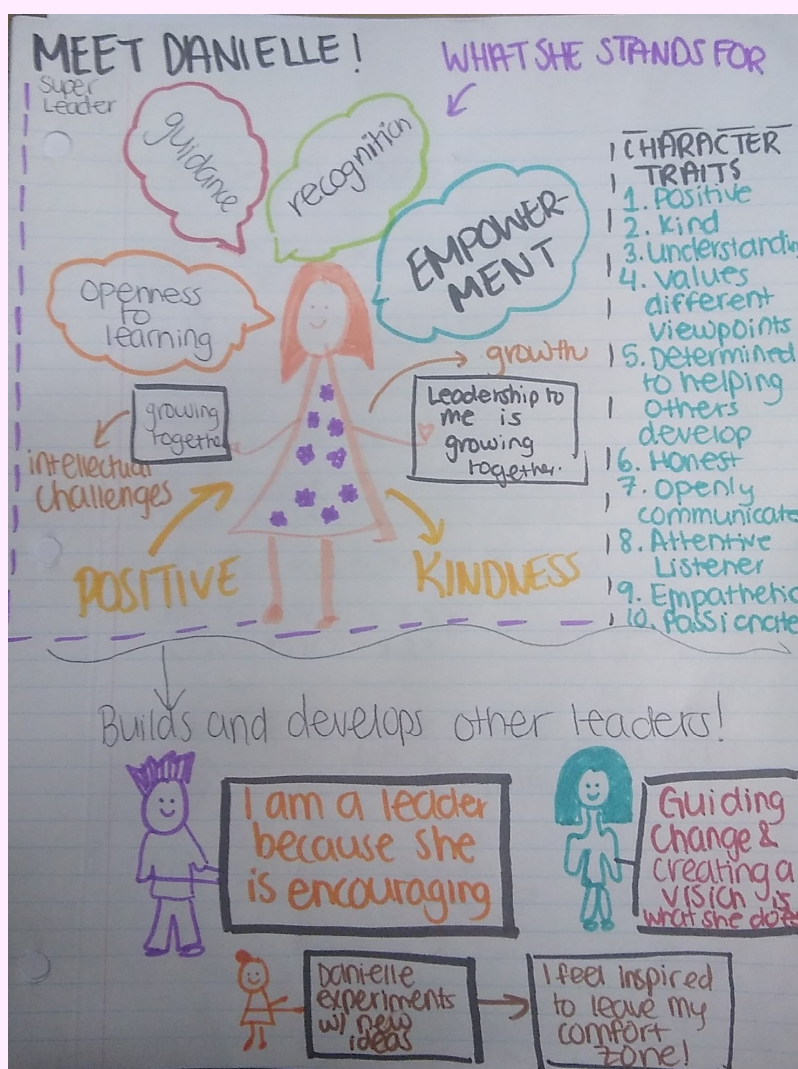 MEET DANIELLE!
Super
Leader
WHAT SHE STANDS FOR
guidance
recognition
EMPOWER-
MENT
openness
to
learning
growing
together
intellectual
challenges
growth
Leadership to
me is
growing
together.
POSITIVE
KINDNESS
CHARACTER
TRAITS
1. Positive
2. Kind
3. Understandin
4. values
different
viewpoints
5. Determined
to helping
others
develop
6. Honest
7. Openly
communicate
8. Attentive
Listener
9. Empathetic
10. Passionate
Builds and develops other leaders!
I am a leader
because she
is encouraging
Guiding
Change &
creating a
vision is
what she does
Danielle
experiments
w/ new
ideas
I feel inspired
to leave my
comfort
zone!